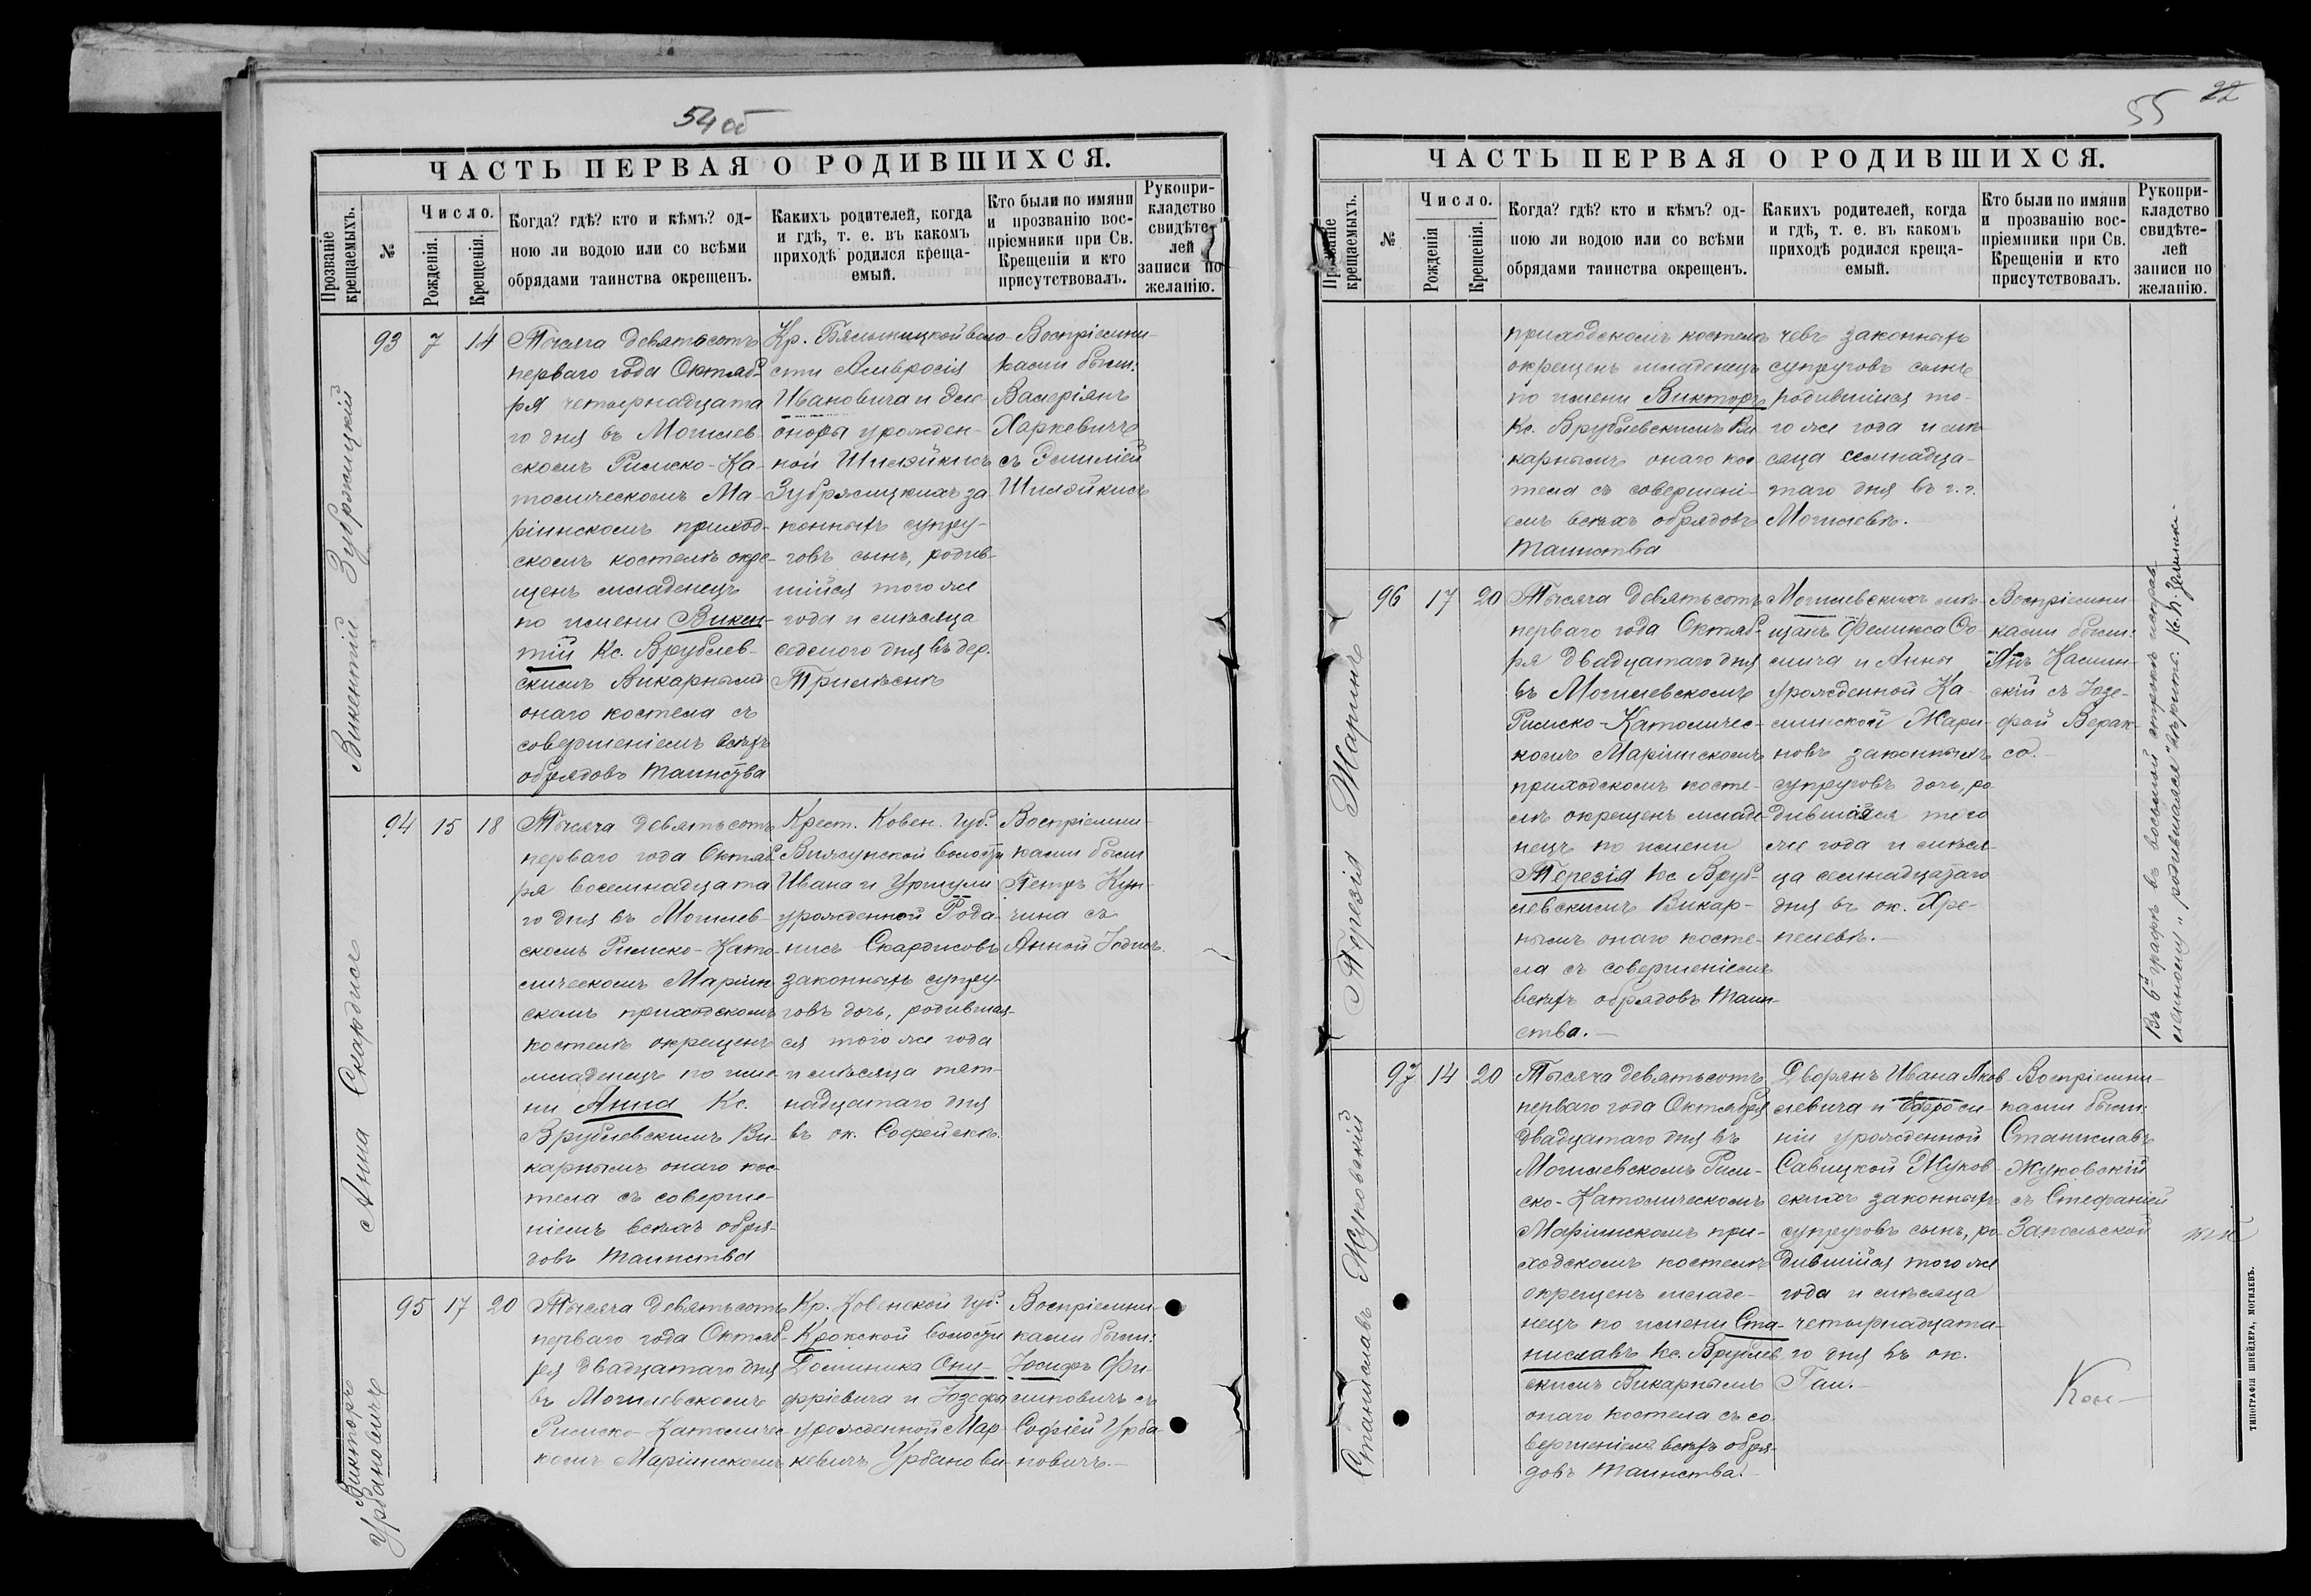 54 об
ЧАСТЬ ПЕРВАЯ О РОДИВШИХСЯ.
Прозваніе крещаемыхъ.
№
Число.
Рожденія.
Крещенія.
Когда? гдѣ? кто и кѣмъ? од-
ною ли водою или со всѣми
обрядами таинства окрещенъ.
Какихъ родителей, когда
и гдѣ, т. е. въ какомъ
приходѣ родился креща-
емый.
Кто были по имяни
и прозванію вос-
пріемники при Св.
Крещеніи и кто
присутствовалъ.
Рукопри-
кладство
свидѣте-
лей
записи по
желанію.
Викентій Зубржицкій
93
7
14
Тысяча девятьсотъ
перваго года Октяб-
ря четырнадцата
го дня въ Могилев-
скомъ Римско-Ка-
толическомъ Ма-
ріинскомъ приход-
скомъ костелѣ окре-
щенъ младенецъ
по имени Викен-
тій Кс. Врублев-
скимъ Викарнымъ
онаго костела съ
совершеніемъ всѣхъ
обрядовъ таинства
Кр. Бялыницкой воло-
сти Амвросія
Ивановича и Эле-
оноры урожден-
ной Шилэйкисъ
за
конныхъ супру-
говъ сынъ, родив-
шійся того же
года и мѣсяца
седьмого дня въ дер.
Воспріемни-
ками были:
Валеріянъ
Харкевичъ
съ Эмиліей
Шилэйкисъ
Анна Скардисъ
94
15
18
Тысяча девятьсотъ
перваго года Октяб-
ря восемнадцата
го дня въ Могилев-
скомъ Римско-Като-
лическомъ Маріин
скомъ приходскомъ
костелѣ окрещенъ
младенецъ по име-
ни Анна Кс.
Врублевскимъ Ви-
карнымъ онаго кос-
тела съ соверше-
ніемъ всѣхъ обря-
довъ таинства
Крест. Ковен. Губ.
волости
Ивана и Уршули
урожденной Рода-
нисъ Скардисовъ
законныхъ супру-
говъ дочь, родившая-
ся того же года
и мѣсяца пят-
надцатаго дня
въ ок. Софейскѣ.
Воспріемни-
ками были
Петръ Кун-
чина съ
Анной Іодисъ.
Викторъ Урбановичъ
95
17
20
Тысяча девятьсотъ
перваго года Октяб-
ря двадцатаго дня
въ Могилевскомъ
Римско-Католичес-
комъ Маріинскомъ
Кр. Ковенской Губ.
Крокской волости
Доминика Ону-
фріевича и Юзефы
урожденной Мар-
кевичъ Урбанови-
Воспріемни-
ками были:
Іосифъ Фи-
липовичъ съ
Софіей Урба-
новичъ.—
55
22
ЧАСТЬ ПЕРВАЯ О РОДИВШИХСЯ.
Прозваніе крещаемыхъ.
№
Число.
Рожденія
Крещенія.
Когда? гдѣ? кто и кѣмъ? од-
ною ли водою или со всѣми
обрядами таинства окрещенъ.
Какихъ родителей, когда
и гдѣ, т. е. въ какомъ
приходѣ родился креща-
емый.
Кто были по имяни
и прозванію вос-
пріемники при Св.
Крещеніи и кто
присутствовалъ.
Рукопри-
кладство
свидѣте-
лей
записи по
желанію.
приходскомъ костелѣ
окрещенъ младенецъ
по имени Викторъ
Кс. Врублевскимъ Ви-
карнымъ онаго кос-
тела съ совершені-
емъ всѣхъ обрядовъ
таинства
чевъ законныхъ
супруговъ сынъ
родившійся то-
го же года и мѣ-
сяца семнадца-
таго дня въ г. г.
Могилевѣ.
Терезія Жаринъ
96
17
20
Тысяча девятьсотъ
перваго года Октяб-
ря двадцатаго дня
въ Могилевскомъ
Римско-Католичес-
комъ Маріинскомъ
приходскомъ косте-
лѣ окрещенъ младе-
нецъ по имени
Терезія Кс. Вруб-
левскимъ Викар-
нымъ онаго косте-
ла съ совершеніемъ
всѣхъ обрядовъ таин-
ства.—
Могилевскихъ мѣ-
щанъ Феликса Ѳо
мича и Анны
урожденной Ка-
минской Жари-
новъ законныхъ
супруговъ дочь, ро
дившаяся того
же года и мѣся-
ца семнадцатаго
дня въ ок. Хре-
пелевѣ.—
Воспріемни-
ками были:
Янъ Камин-
скій съ Юзе-
фой Верак-
со.—
Въ 6й графѣ въ восьмой строкѣ исправ
ленному „родившаяся" вѣрить. Кс. К.
Станиславъ Жуковскій
97
14
20
Тысяча девятьсотъ
перваго года Октября
двадцатаго дня въ
Могилевскомъ Рим-
ско-Католическомъ
Маріинскомъ при-
ходскомъ костелѣ
окрещенъ младе-
нецъ по имени Ста-
ниславъ Кс. Врублев
скимъ Викарнымъ
онаго костела съ со
вершеніемъ всѣхъ обря-
довъ таинства.—
Дворянъ Ивана Яков-
левича и Ефроси-
ніи урожденной
Савицкой Жуков-
скихъ законныхъ
супруговъ сынъ, ро-
дившійся того же
года и мѣсяца
четырнадцата-
го дня въ ок.
Гаи.—
Воспріемни-
ками были:
Станиславъ
Жуковскій
съ Стефаніей
Запольской
ТИПОГРАФІЯ ШНЕЙДЕРА, МОГИЛЕВЪ.